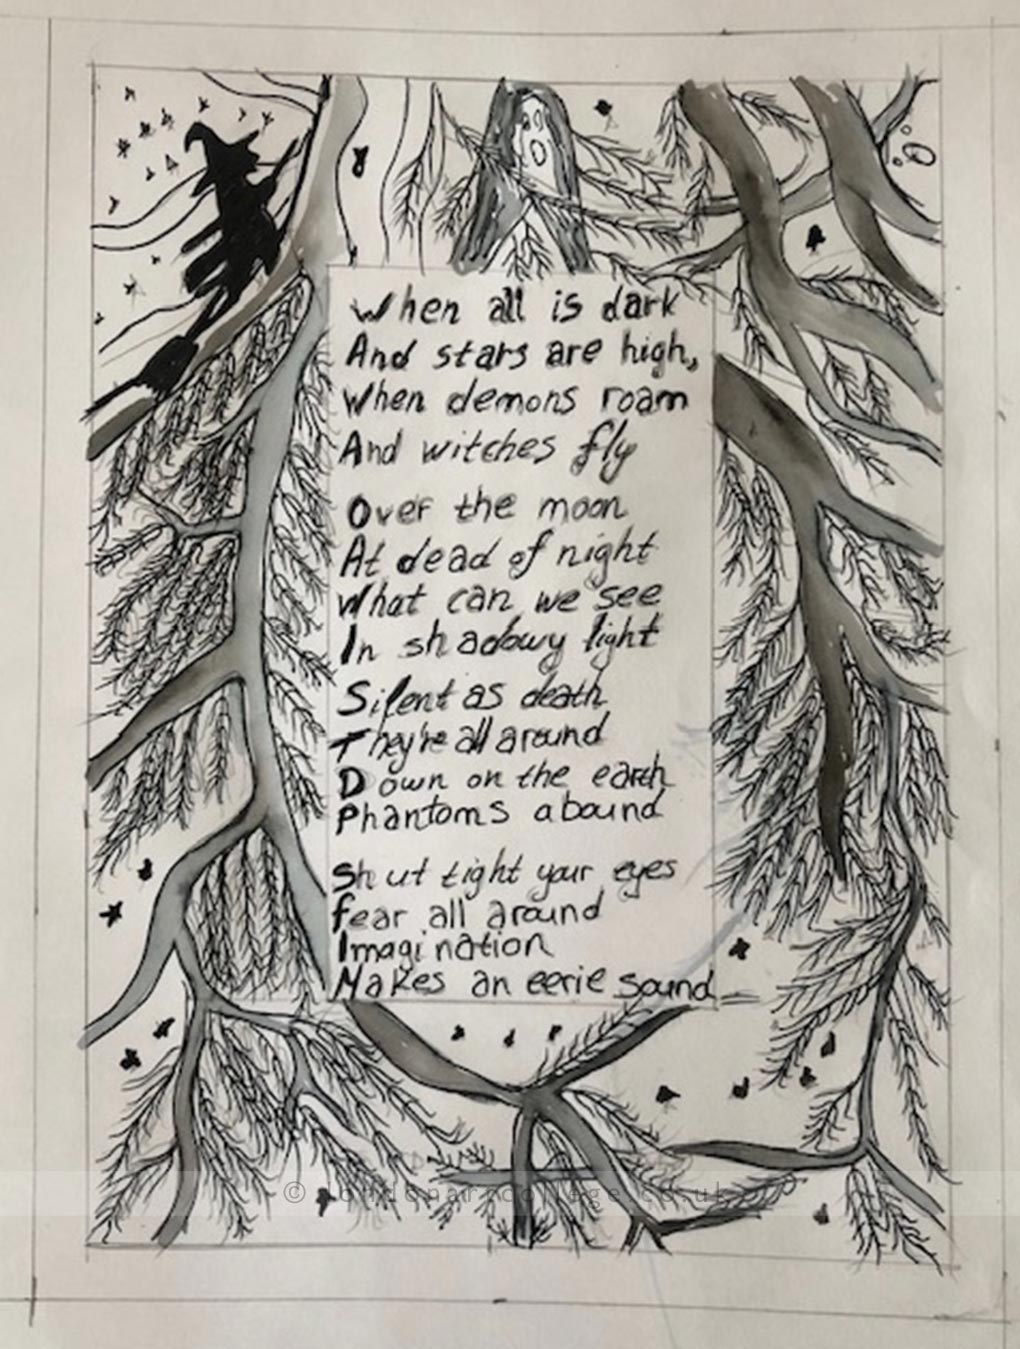 When all is dark
And stars are high,
When demons roam
And witches fly
Over the moon
At dead of night
What can we see
In shadowy light
Silent as death
They're all around
Down on the earth
Phantoms abound
Shut tight your eyes
fear all around
Imagination
Makes an eerie sound
© londonartcollege.co.uk